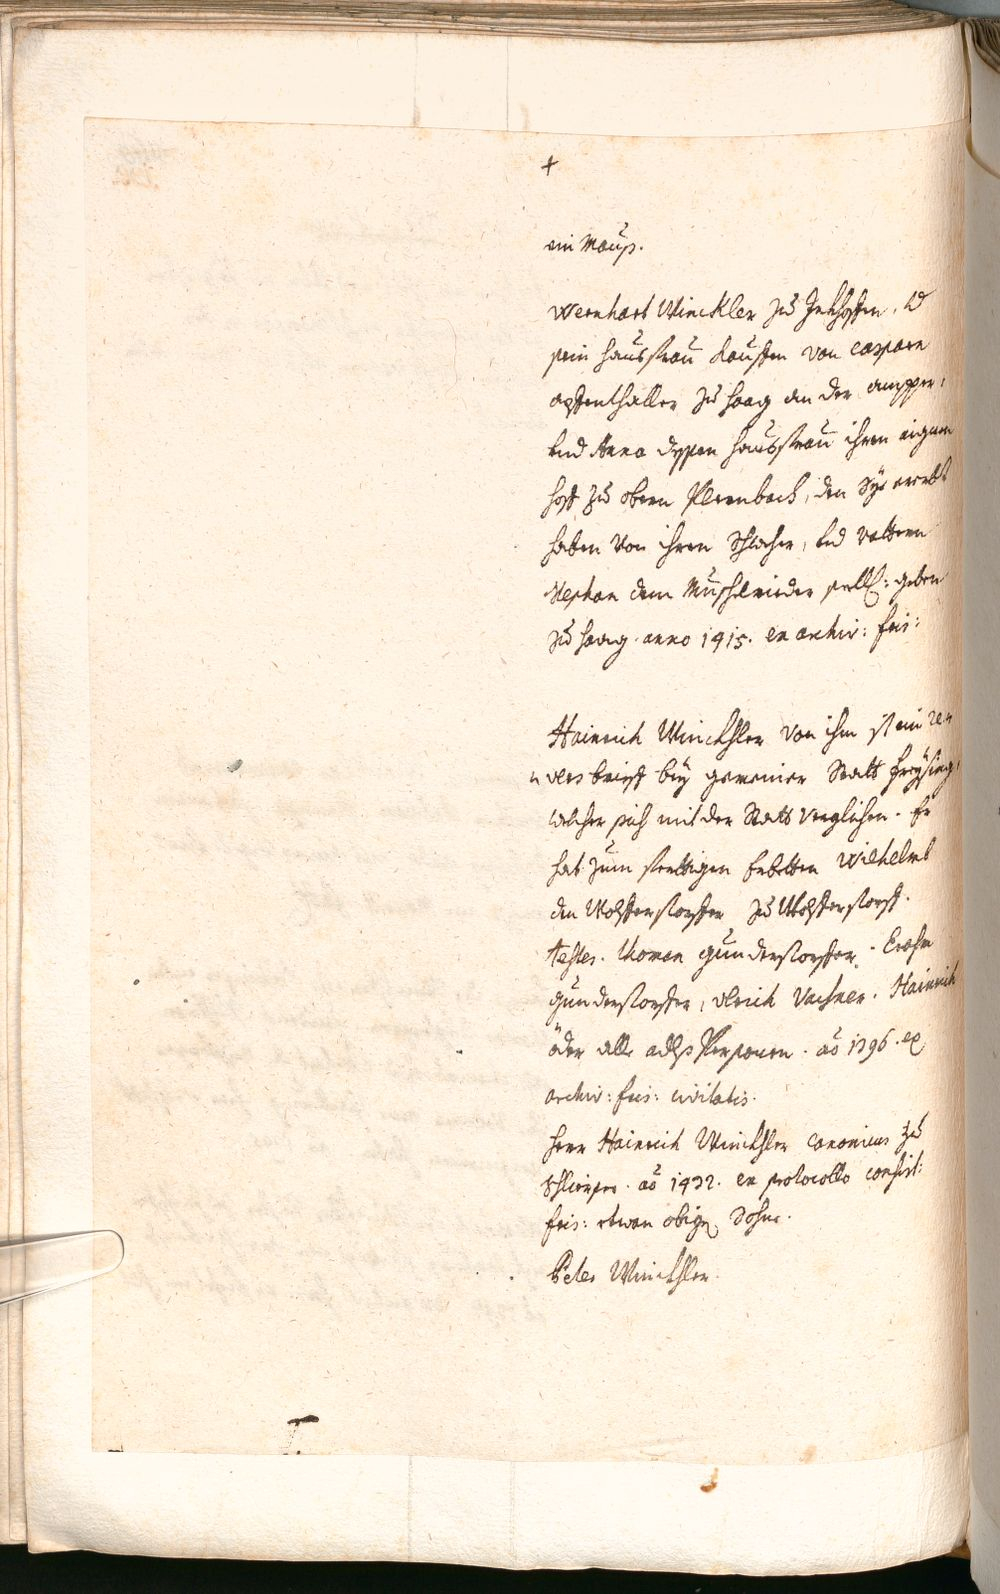 +
ein Mauß.
Wernhart Winckler zu Inkhoffen, vnd
sein haußfrau kauffen von Caspare
apfenthaller zu haag an der ampper,
vnd Anna dessen haußfrau ihren aignen
hoff zu obern Pleenbach, den Sye ererbt
haben von ihren Schwher, vnd vattern
Stephan dem Muschelrieder seel: geben
zu haag anno 1415. ex archiv: fris:
Hainrich Winckhler von ihm ist ein re-
vers brieff bey gemainer Statt Freysing,
welcher sich mit der Statt verglichen. Er
hat zum sierttigen Erbetten Wilhelmb
den Wolfferstorffer zu Wolfferstorff.
testes. Thoman gunderstorffer. Erasm
gunderstorffer, Vlrich Vachner. Hainrich
öder alle adls Persohnen. ao 1396. ex
archiv: fris: civitatis.
herr Hainrich Winckhler canonicus zu
Schliersee. ao 1432. ex protocollo consist:
fris: etwan obign Sohne.
Peter Winckhler.